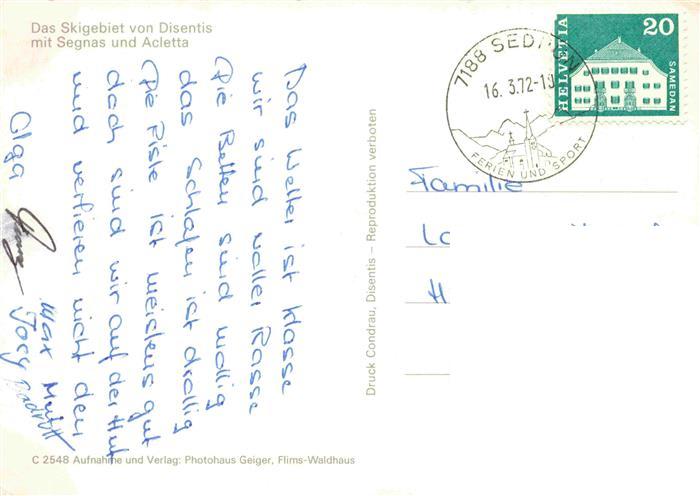 Das Skigebiet von Disentis
mit Segnas und Acletta
Das Wetter ist klasse
wir sind voller Rasse
Die Betten sind wollig
das Schlafen ist drollig
Die Piste ist meistens gut
doch sind wir auf der Hut
und verlieren nicht den
Mut
Olga
Max
Joey
C 2548 Aufnahme und Verlag: Photohaus Geiger, Flims-Waldhaus
Druck Condrau, Disentis – Reproduktion verboten
7188 SED
16.3.72-1
FERIEN UND SPORT
HELVETIA
20
SAMEDAN
Familie